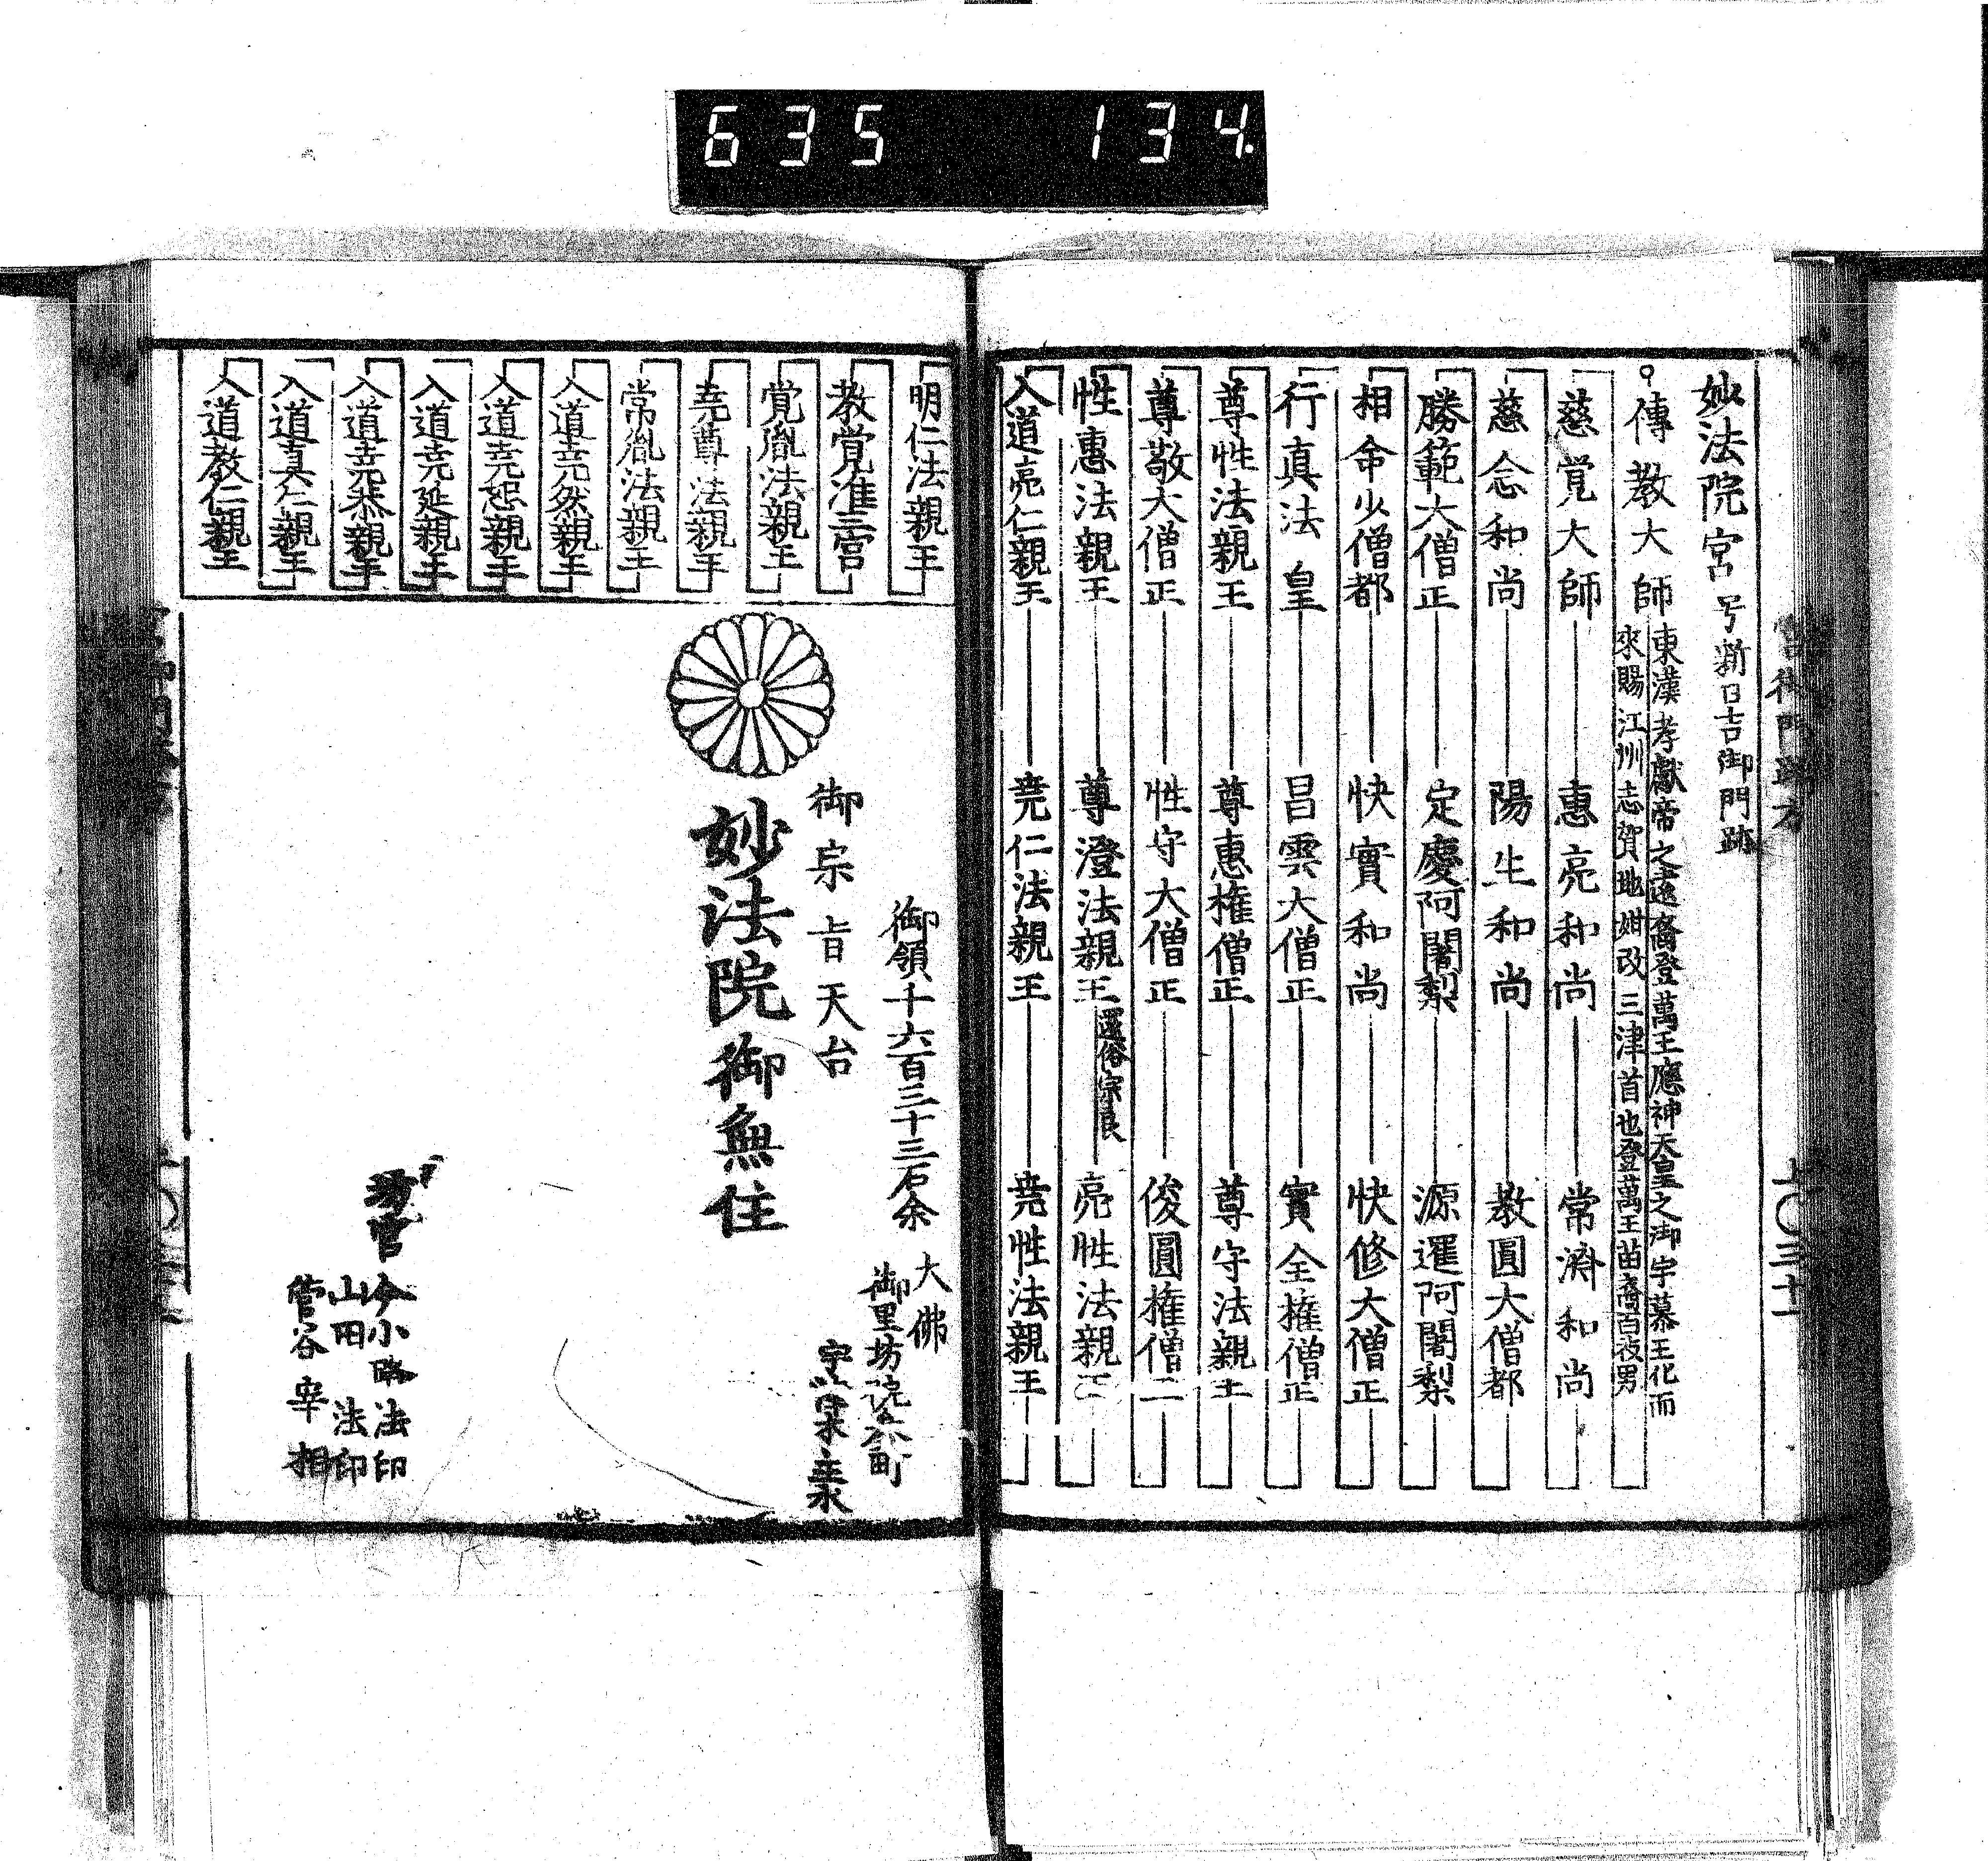 635 134
宮御門跡方
上〇三十一
妙法院宮 号新日吉御門跡
傳教大師 東漢孝獻帝之遠裔登萬王應神天皇之御宇慕王化而
來賜江州志賀地姓改三津首也登萬王苗裔百枝男
慈覚大師 惠亮和尚 常濟和尚
慈念和尚 陽生和尚 教圓大僧都
勝範大僧正 定慶阿闍梨 源暹阿闍梨
相命少僧都 快實和尚 快修大僧正
行真法皇 昌雲大僧正 實全権僧正
尊性法親王 尊惠権僧正 尊守法親王
尊敬大僧正 性守大僧正 俊圓権僧正
性惠法親王 尊澄法親王 還俗宗良 亮性法親王
入道亮仁親王 尭仁法親王 尭性法親王
明仁法親王
教覚准三宮
覚胤法親王
尭尊法親王
常胤法親王
入道尭然親王
入道尭恕親王
入道尭延親王
入道尭恭親王
入道真仁親王
入道教仁親王
御領千六百三十三石余
大佛
御里坊院参町
御宗旨天台
妙法院御無住
坊官
今小路法印
山田法印
菅谷宰相